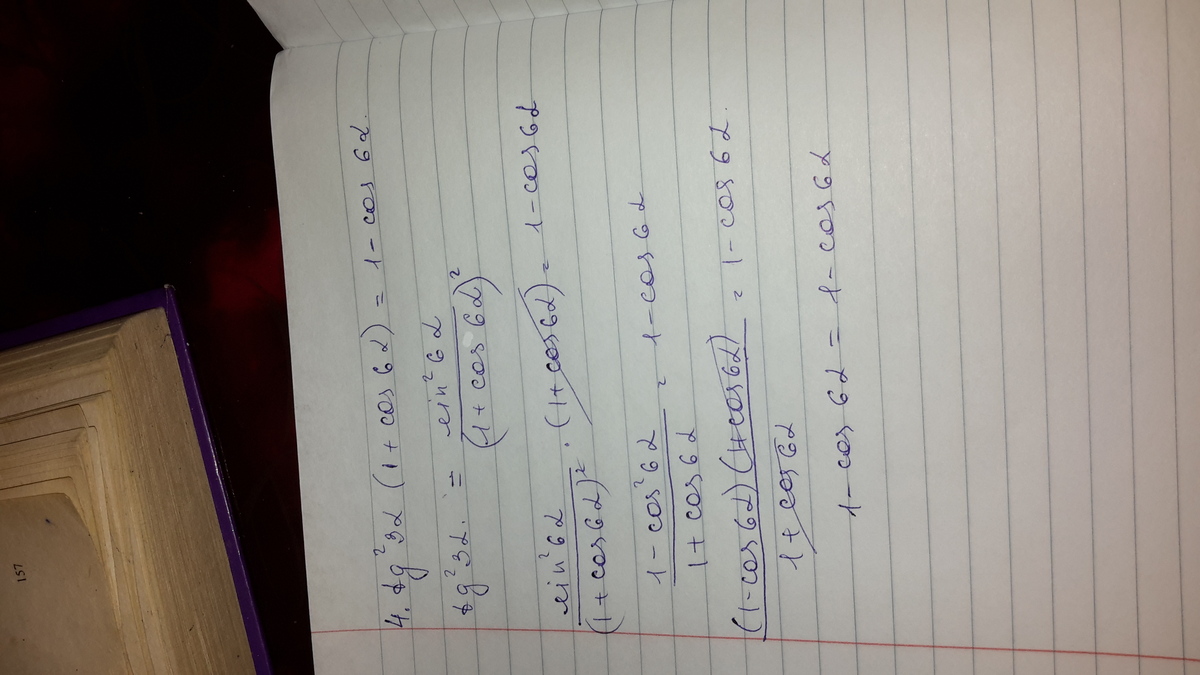 4. tg²3α (1 + cos 6α) = 1 - cos 6α.
tg²3α. = sin²6α / (1 + cos 6α)²
sin²6α / (1 + cos6α)² · (1 + cos6α) = 1 - cos6α
1 - cos²6α / 1 + cos6α = 1 - cos6α
(1 - cos6α)(1 + cos6α) / 1 + cos6α = 1 - cos6α.
1 - cos 6α = 1 - cos6α
157